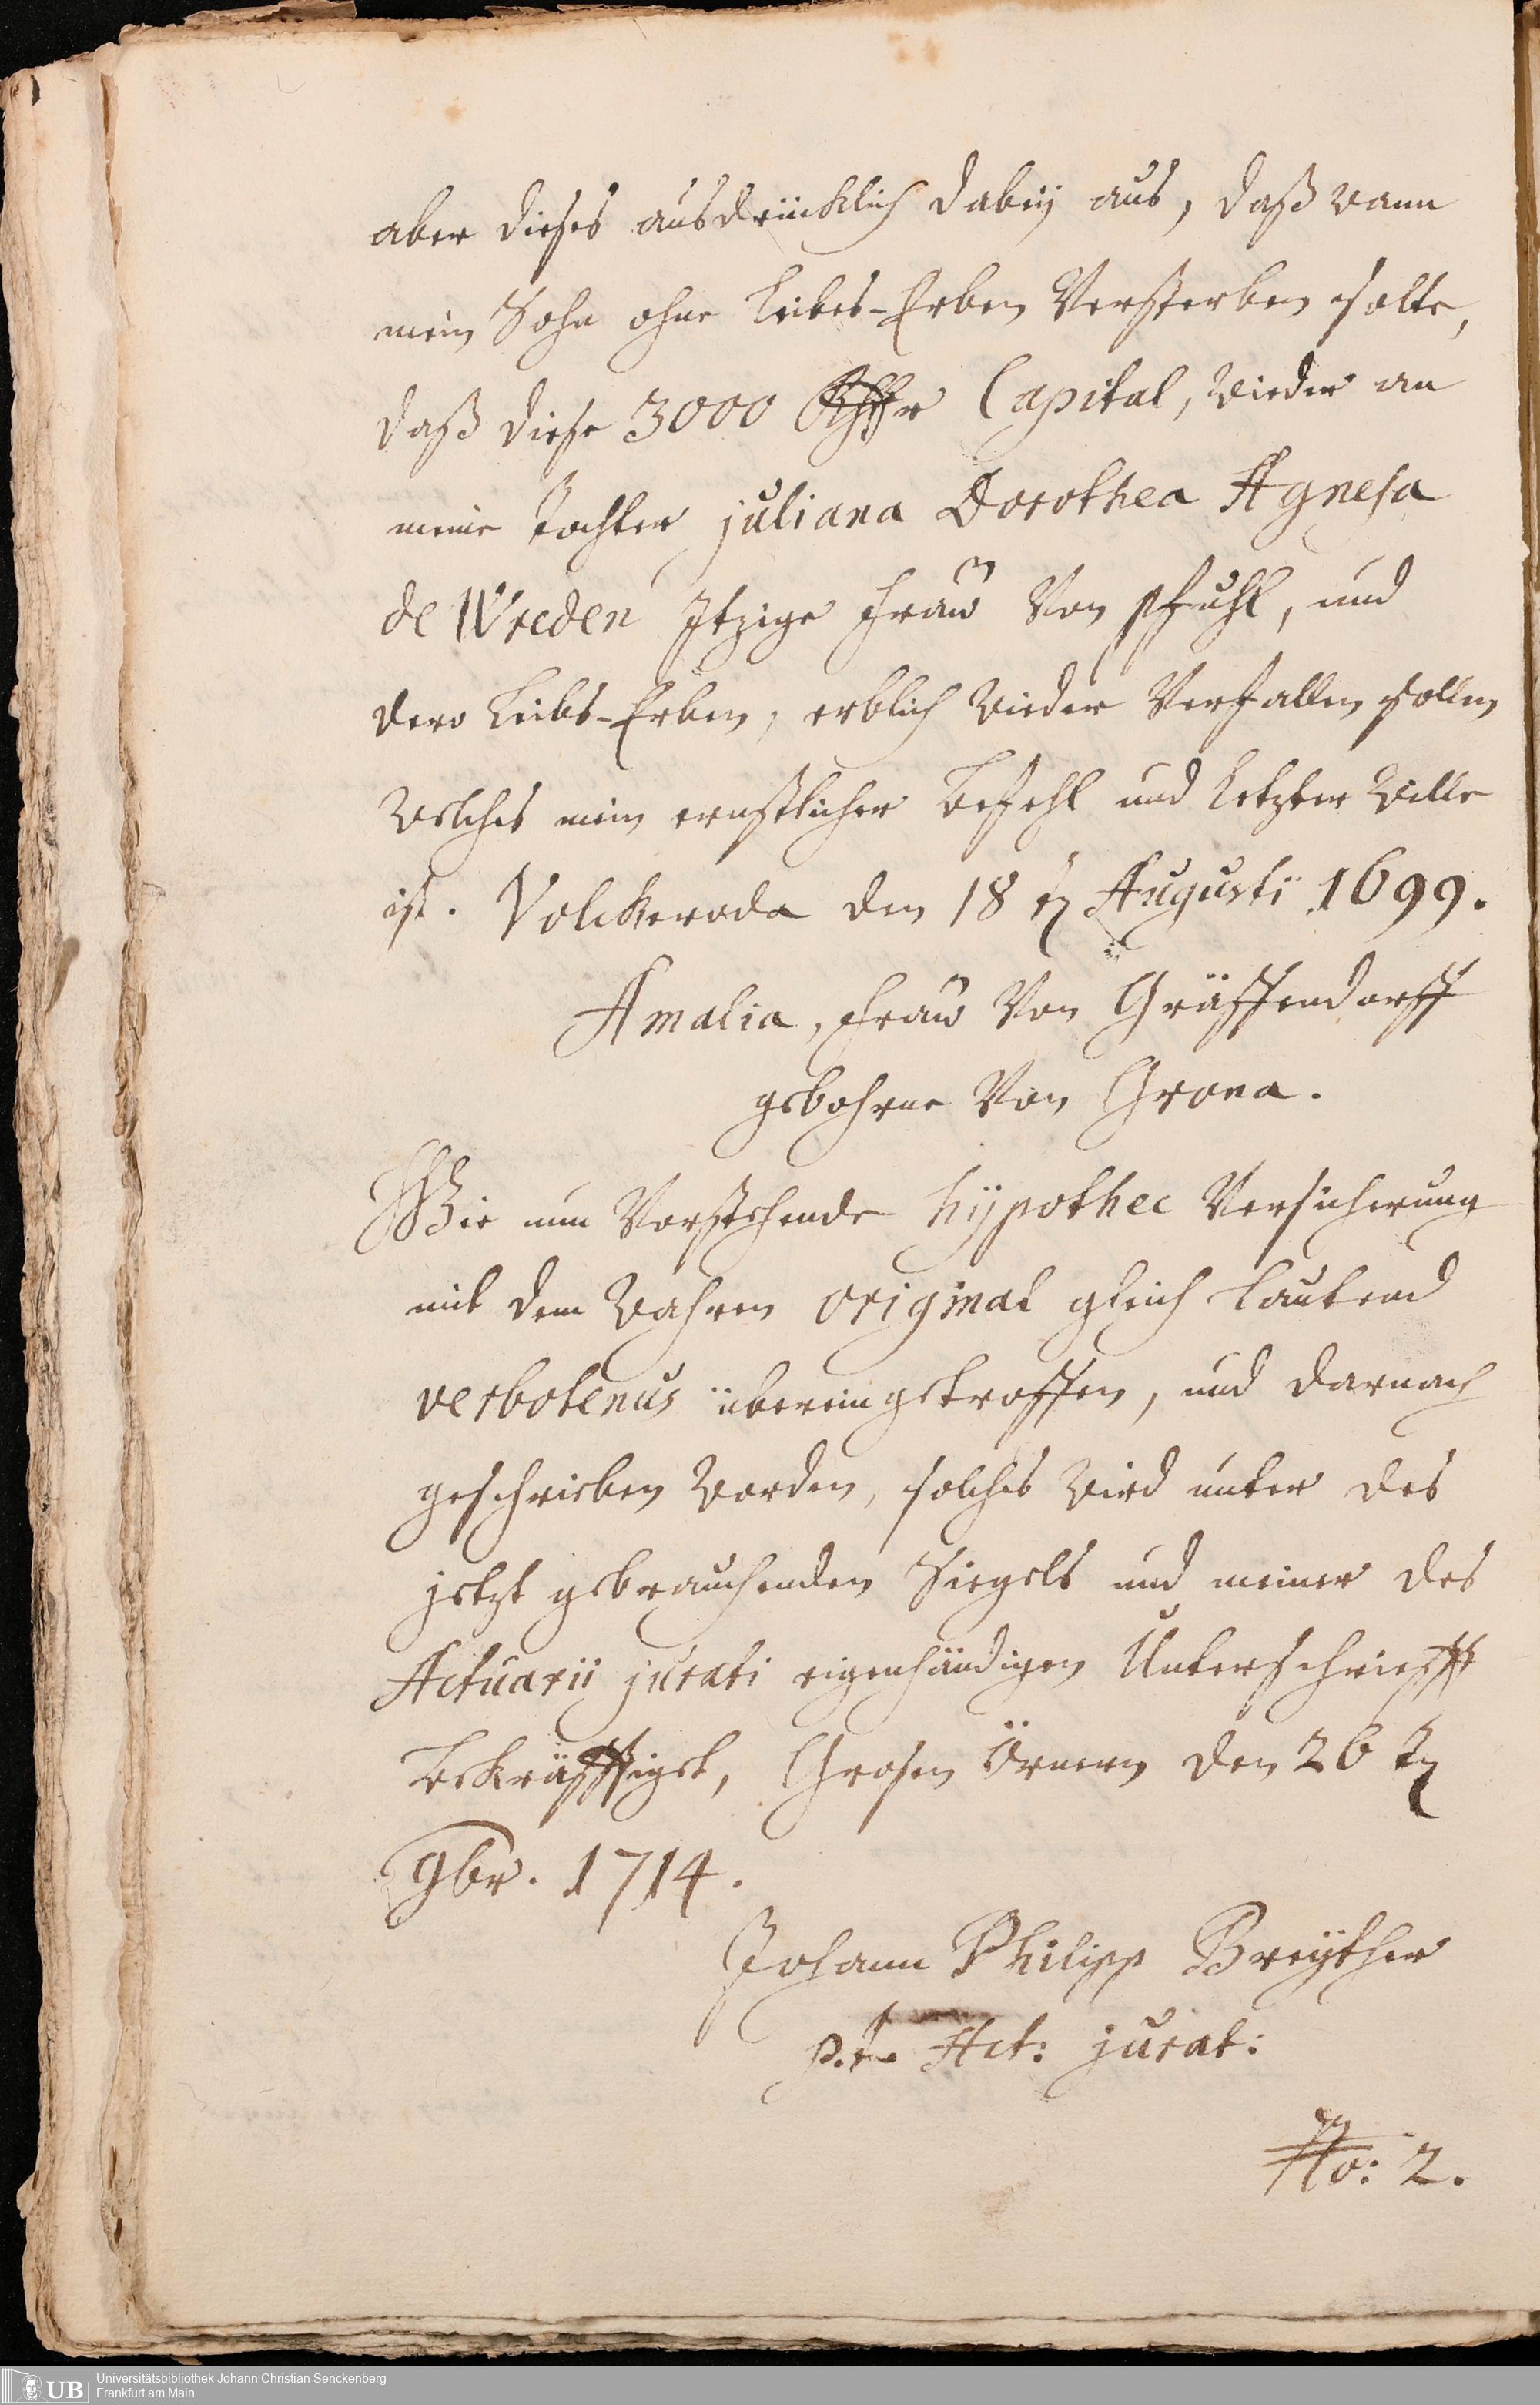 aber dieses ausdrücklich dabeÿ aus, daß wann
mein Sohn ohne Leibes-Erben Versterben solte,
daß diese 3000 Rthlr Capital, wieder an
meine Tochter juliana Dorothea Agnesa
de Wreden Itzige Frau Von Pfuhl, und
dero Leibs-Erben, erblich wieder Verfallen sollen
welches mein ernstlicher Befehl und Letzter Wille
ist. Volckeroda den 18 tn Augusti 1699.
Amalia, Frau Von Gräffendorff
gebohrne Von Grona.
Wie nun Vorstehende hÿpothec Versicherung
mit dem Wahren original gleich Lautend
verbotenus übereingetroffen, und darnach
geschrieben worden, solches wird unter des
jetzt gebrauchenden Siegels und meiner des
Actuarii jurati eigenhändigen Unterschriefft
bekräfftiget, Grosen Örnern den 26 tn
9br. 1714.
Johann Philipp Breÿther
p.t. Act: jurat:
No: 2.
UB
Universitätsbibliothek Johann Christian Senckenberg
Frankfurt am Main